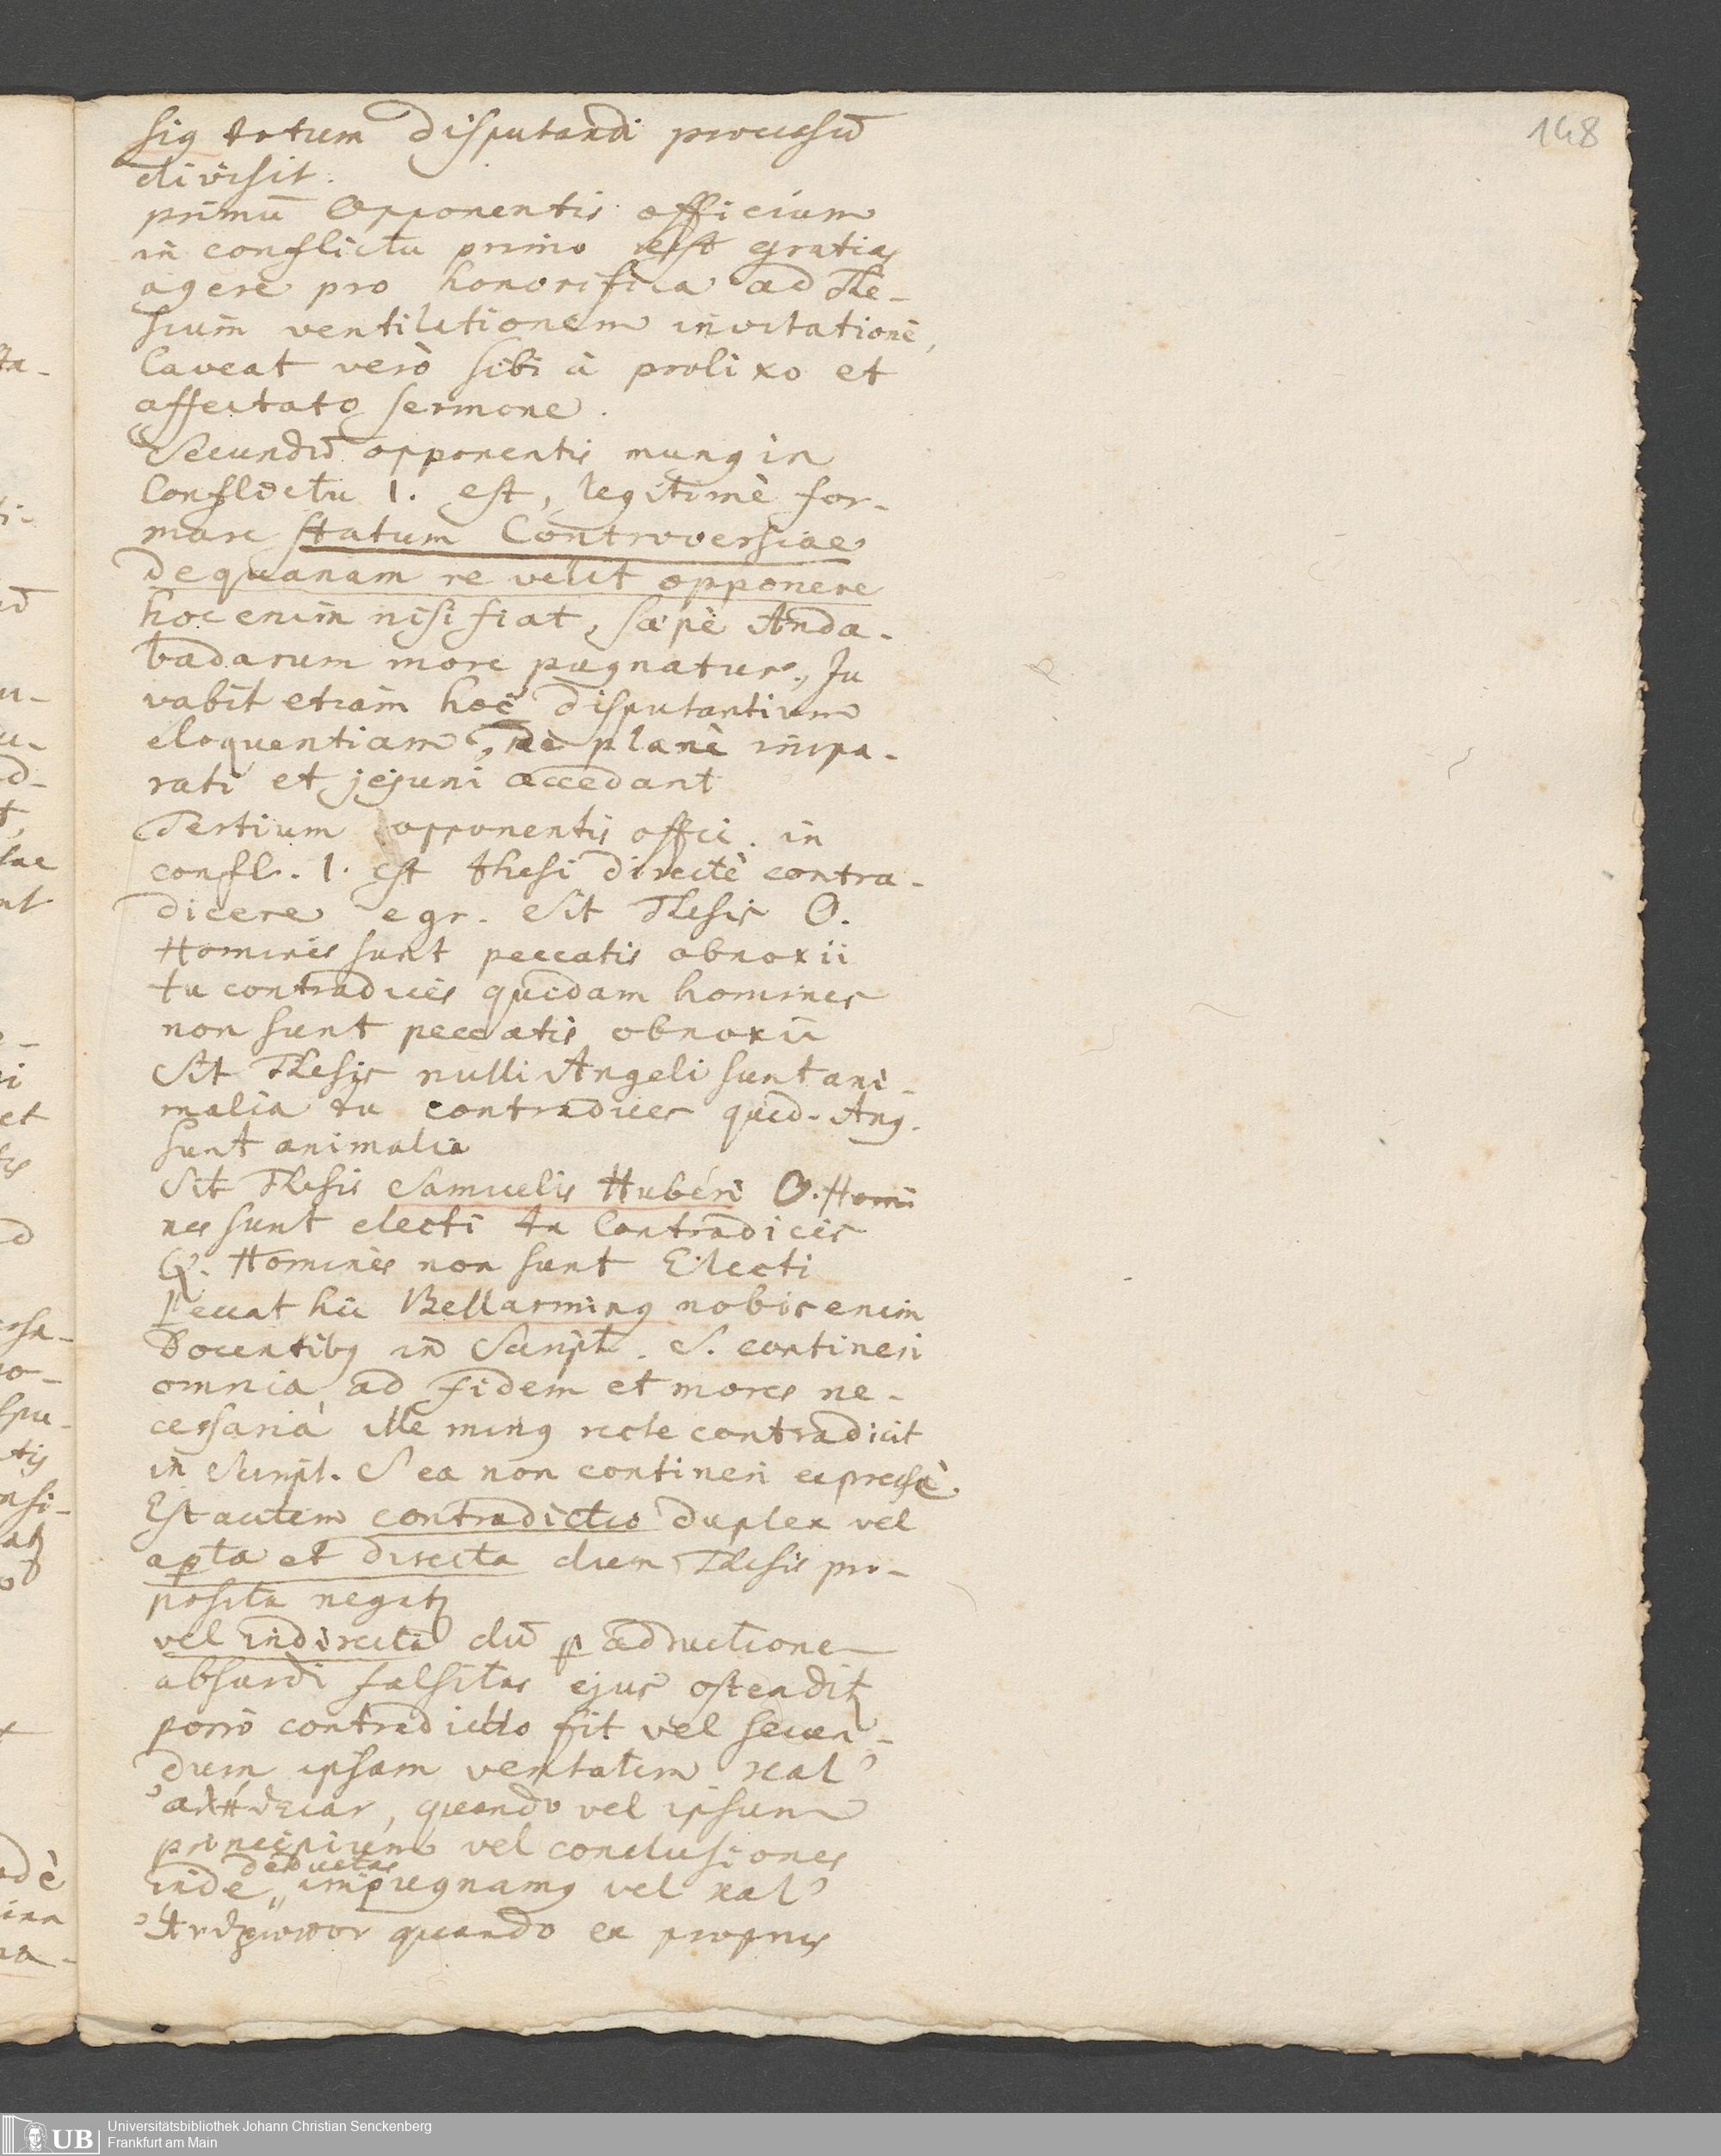 148
siq totum disputandi processū
divisit.
primū Opponentis officium
in conflictu primo est gratias
agere pro honorifica ad The-
sium ventilationem invitatione,
Caveat verò sibi à prolixo et
affectato sermone.
Secundū opponentis munq in
Conflictu 1. est, legitimè for-
mare statum Controversiae
de quanam re velit opponere
hoc enim nisi fiat, sæpè Anda-
badarum more pugnatur, Ju
vabit etiam hoc disputantium
eloquentiam, ne planè impa-
rati et jejuni accedant
Tertium opponentis offici. in
confl. 1. est thesi directè contra-
dicere egr. Sit Thesis O.
Homines sunt peccatis obnoxii
tu contradices quidam homines
non sunt peccatis obnoxii
Sit Thesis nulli Angeli sunt ani-
malia tu contradices quid. Ang.
sunt animalia
Sit Thesis Samuelis Huberi O. Homi
nes sunt electi tu Contradicis
Q. Homines non sunt Electi
Peccat hic Bellarminq nobis enim
Docentibq in Script. S. contineri
omnia ad fidem et mores ne-
cessaria ille minq recte contradicit
in Script. S ea non contineri expressè.
Est autem contradictio duplex vel
apta et directa dum Thesis pro-
posita negatʒ
vel indirecta dū p adductione
absurdi falsitas ejus ostenditʒ
porrò contradictio fit vel secun-
dum ipsam veritatem κατ'
quando vel ipsum
principium vel conclusiones
deductas
inde impugnamq vel κατ'
quando ex propriis
Universitätsbibliothek Johann Christian Senckenberg
Frankfurt am Main
UB